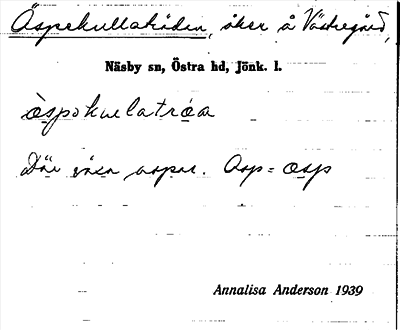 Äspekullatråden, åker å Västregård,
Näsby sn, Östra hd, Jönk. l.
Där växa aspar. Asp = äsp
Annalisa Anderson 1939